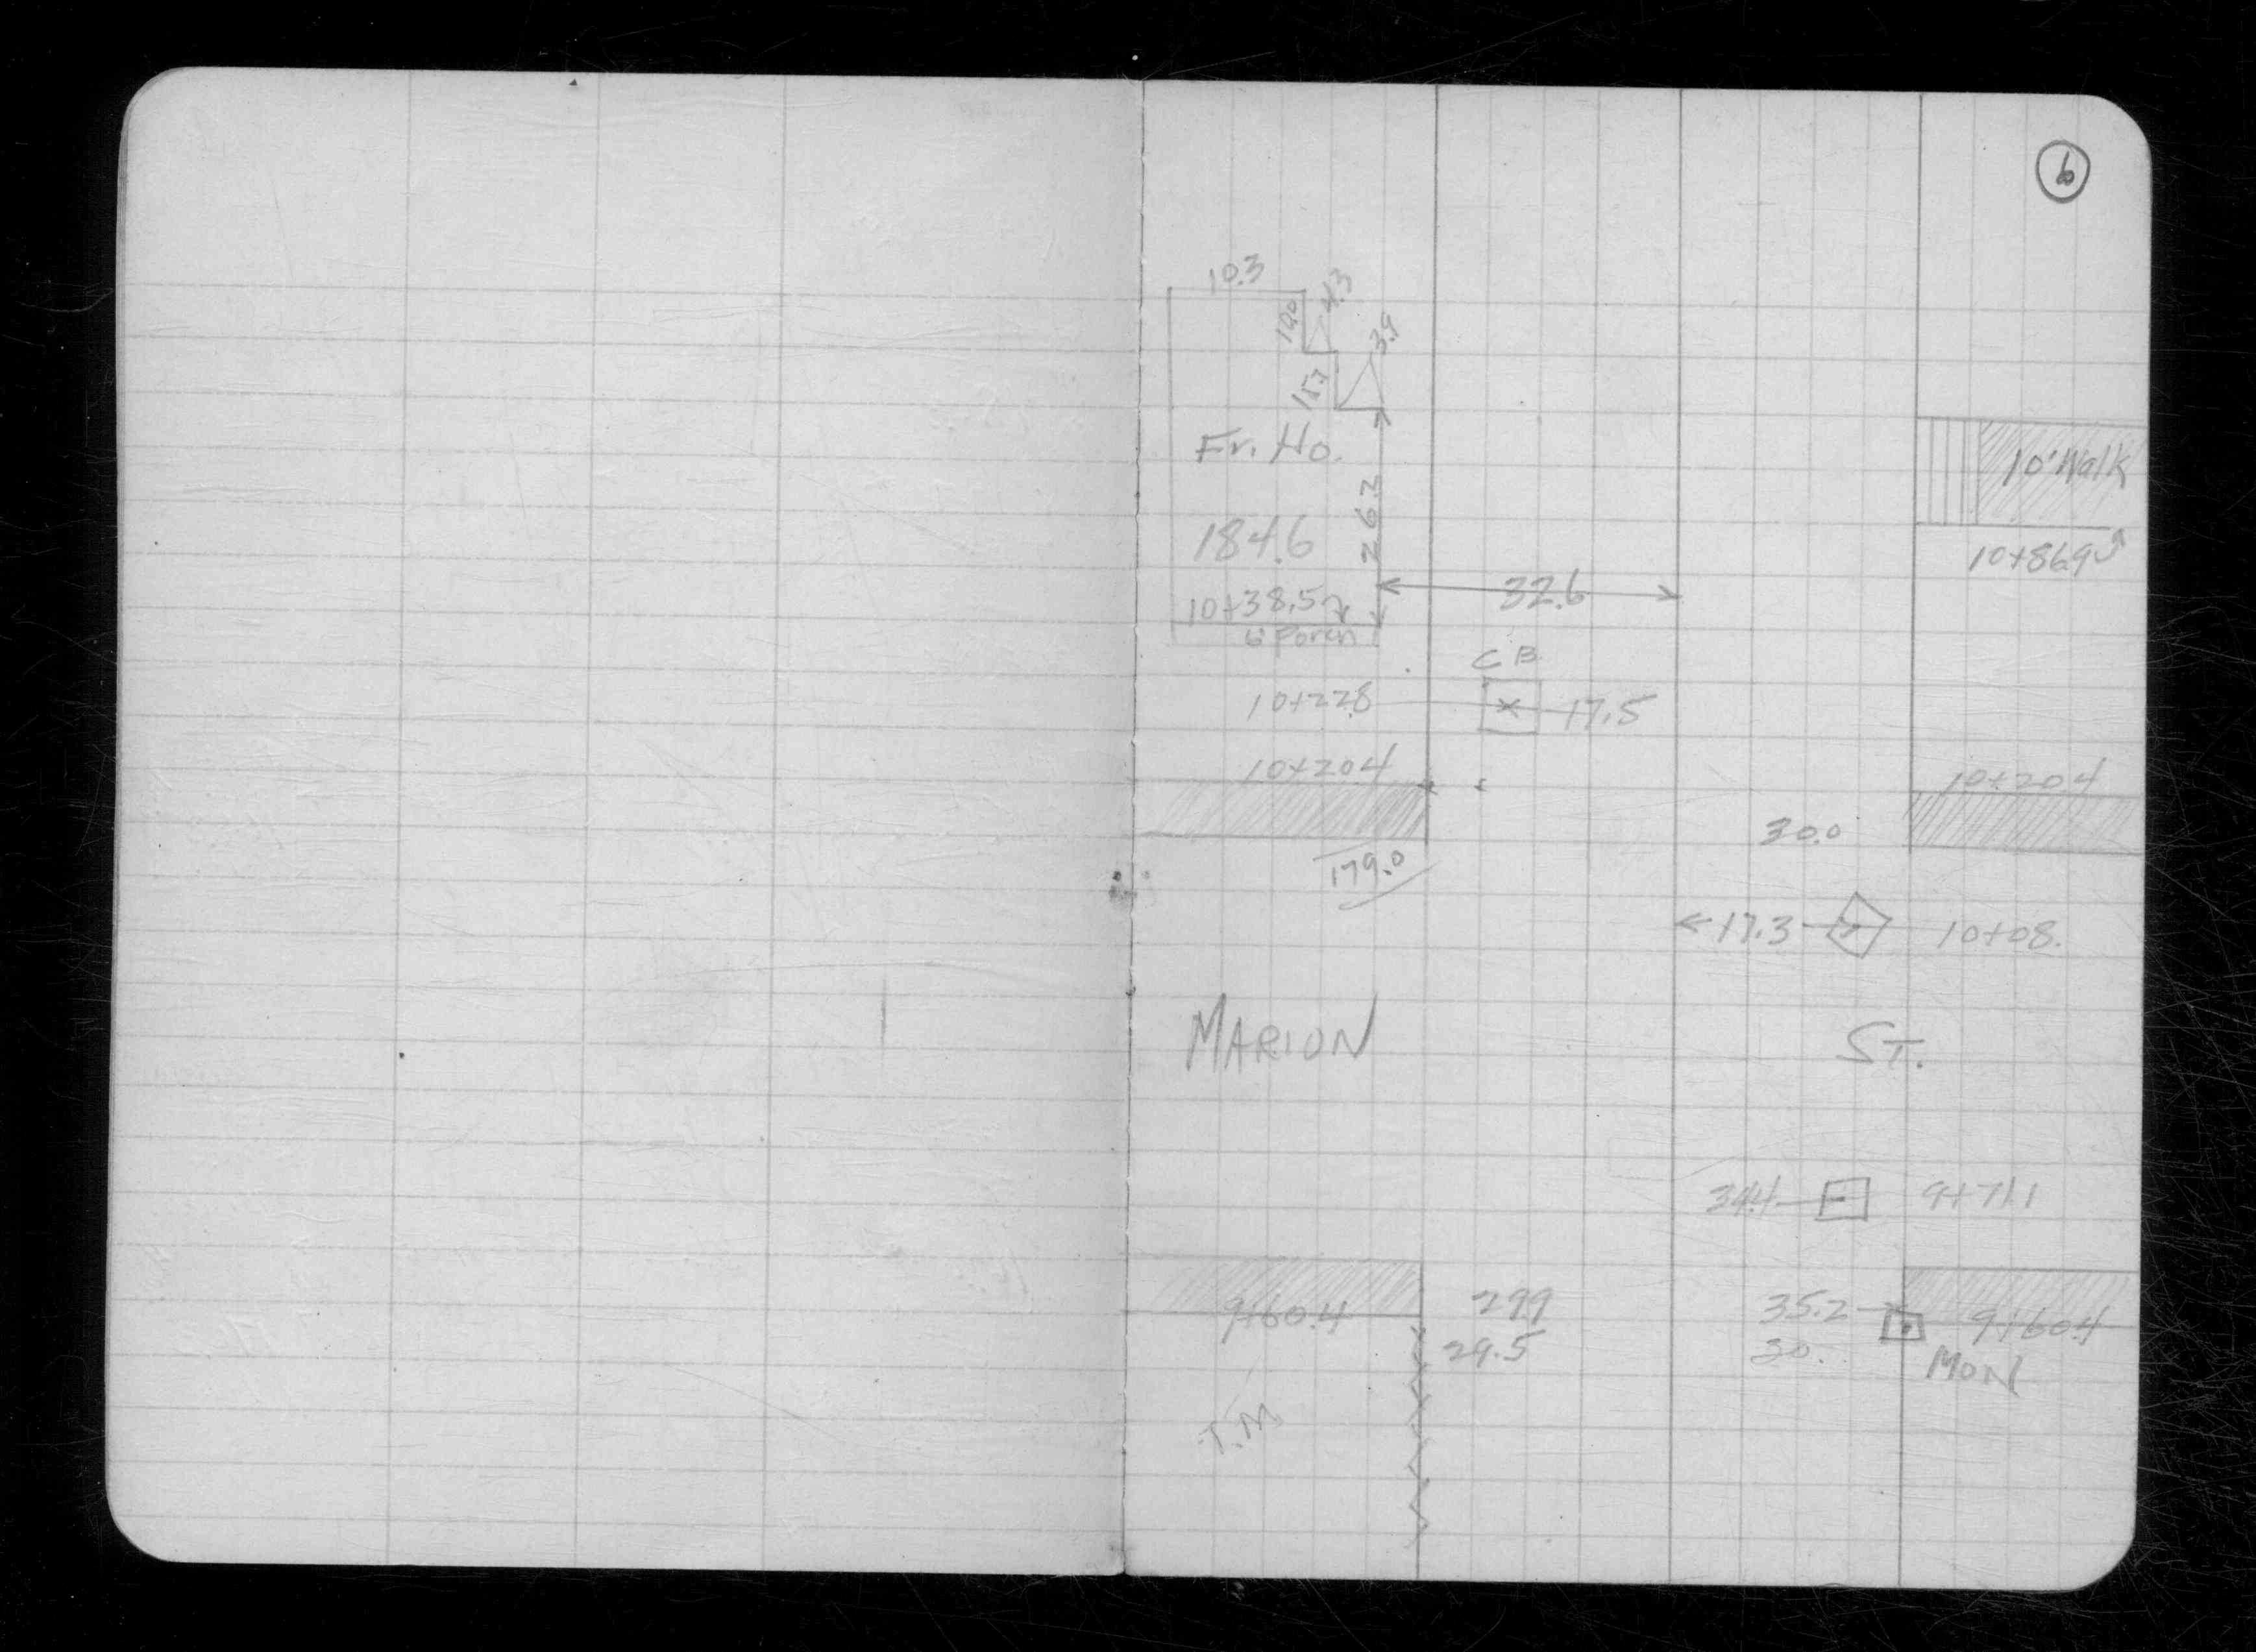 6
10.3
4.3
10.0
3.9
15.7
Fr. Ho.
10' Walk
26.2
184.6
10+86.9
32.6
10+38.5
6' Porch
C B
10+22.8
17.5
10+20.4
10+20.4
30.0
179.0
17.3
10+08.
MARION ST.
34.4
9+71.1
9+60.4
29.9
35.2
9+60.4
29.5
30.
MON
T.M